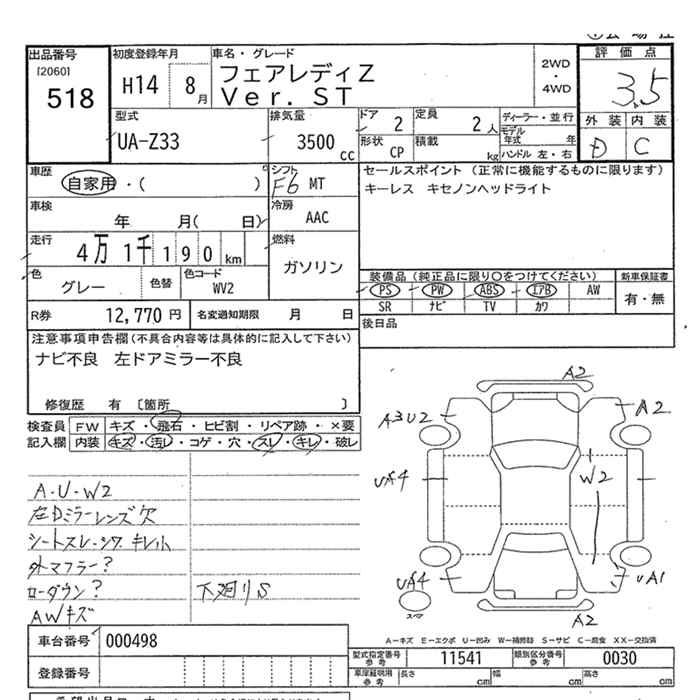 出品番号 初度登録年月 車名・グレード 評価点
[2060]
518 H14 8月 フェアレディZ 2WD・4WD 3.5
Ver. ST
型式 排気量 ドア 定員 ディーラー・並行 外装 内装
UA-Z33 3500cc 2 2人 モデル年式 年 D C
形状 CP 積載 kg ハンドル 左・右
車歴 シフト セールスポイント (正常に機能するものに限ります)
自家用・( ) F6 MT キーレス キセノンヘッドライト
車検 年 月( 日) 冷房 AAC
走行 4万1千190km 燃料 ガソリン
色 グレー 色替 色コード WV2
装備品 (純正品に限り○をつけてください) 新車保証書
PS PW ABS エアB AW 有・無
SR ナビ TV カワ
R券 12,770円 名変通知期限 月 日
後日品
注意事項申告欄(不具合内容等は具体的に記入して下さい)
ナビ不良 左ドアミラー不良
修復歴 有 〔箇所 〕
検査員記入欄 FW キズ・飛石・ヒビ割・リペア跡・×要
内装 キズ・汚レ・コゲ・穴・スレ・キレ・破レ
A・U・W2
左Dミラーレンズ欠
シートスレ・シワ キレ小
外マフラー?
ローダウン? 下廻りS
AWキズ
A2
A3U2 A2
UA4 W2
UA4 UA1
スペア A2
A-キズ E-エクボ U-凹み W-補修跡 S-サビ C-腐食 XX-交換済
車台番号 000498
型式指定番号 参考 11541 類別区分番号 参考 0030
登録番号
車庫証明用 参考 長さ cm 幅 cm 高さ cm